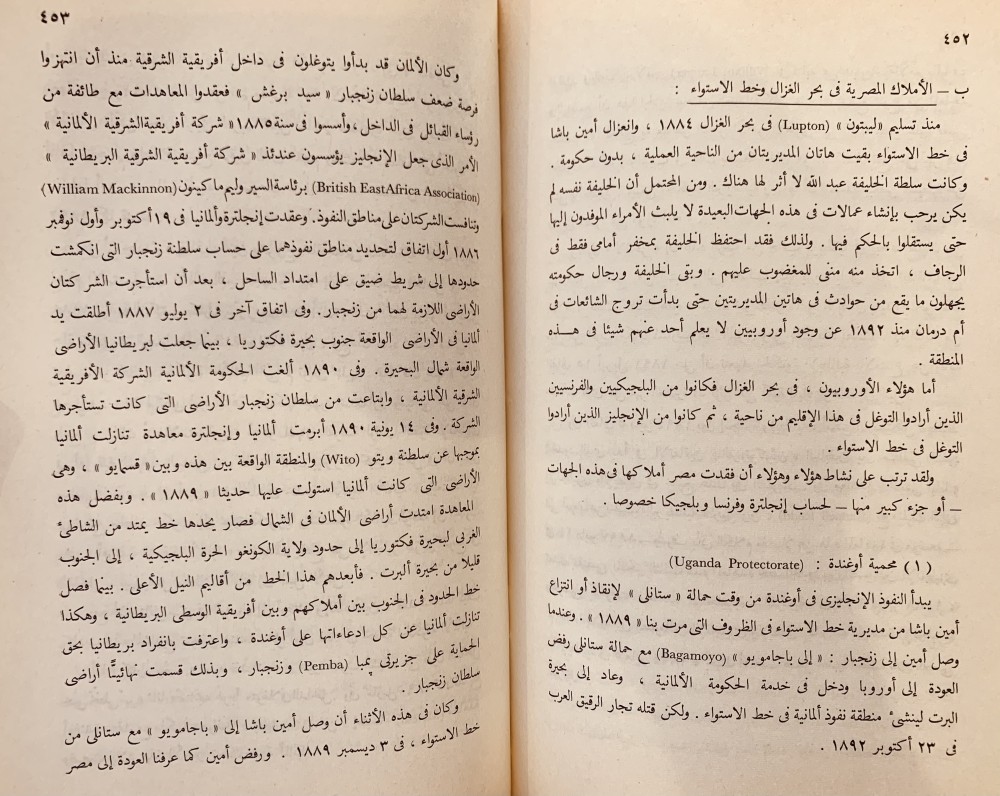 ٤٥٢
ب — الأملاك المصرية فى بحر الغزال وخط الاستواء :
منذ تسليم «ليبتون» (Lupton) فى بحر الغزال ١٨٨٤ ، وانعزال أمين باشا
فى خط الاستواء بقيت هاتان المديريتان من الناحية العملية ، بدون حكومة .
وكانت سلطة الخليفة عبد الله لا أثر لها هناك . ومن المحتمل أن الخليفة نفسه لم
يكن يرحب بإنشاء عمالات فى هذه الجهات البعيدة لا يلبث الأمراء الموفدون إليها
حتى يستقلوا بالحكم فيها . ولذلك فقد احتفظ الخليفة بمخفر أمامى فقط فى
الرجاف ، اتخذ منه منفى للمغضوب عليهم . وبقى الخليفة ورجال حكومته
يجهلون ما يقع من حوادث فى هاتين المديريتين حتى بدأت تروج الشائعات فى
أم درمان منذ ١٨٩٢ عن وجود أوروبيين لا يعلم أحد عنهم شيئا فى هـــذه
المنطقة .
أما هؤلاء الأوروبيون ، فى بحر الغزال فكانوا من البلجيكيين والفرنسيين
الذين أرادوا التوغل فى هذا الإقليم من ناحية ، ثم كانوا من الإنجليز الذين أرادوا
التوغل فى خط الاستواء .
ولقد ترتب على نشاط هؤلاء وهؤلاء أن فقدت مصر أملاكها فى هذه الجهات
— أو جزء كبير منها — لحساب إنجلترة وفرنسا وبلجيكا خصوصا .
( ١ ) محمية أوغندة : (Uganda Protectorate)
يبدأ النفوذ الإنجليزى فى أوغندة من وقت حمالة « ستانلى » لإنقاذ أو انتزاع
أمين باشا من مديرية خط الاستواء فى الظروف التى مرت بنا « ١٨٨٩ » . وعندما
وصل أمين إلى زنجبار : « إلى باجامويو » (Bagamoyo) مع حمالة ستانلى رفض
العودة إلى أوروبا ودخل فى خدمة الحكومة الألمانية ، وعاد إلى بحيرة
البرت لينشىء منطقة نفوذ ألمانية فى خط الاستواء . ولكن قتله تجار الرقيق العرب
فى ٢٣ أكتوبر ١٨٩٢ .
٤٥٣
وكان الألمان قد بدأوا يتوغلون فى داخل أفريقية الشرقية منذ أن انتهزوا
فرصة ضعف سلطان زنجبار « سيد برغش » فعقدوا المعاهدات مع طائفة من
رؤساء القبائل فى الداخل ، وأسسوا فى سنة ١٨٨٥ « شركة أفريقية الشرقية الألمانية »
الأمر الذى جعل الإنجليز يؤسسون عندئذ « شركة أفريقية الشرقية البريطانية »
(British EastAfrica Association) برئاسة السير وليم ماكينون (William Mackinnon)
وتنافست الشركتان على مناطق النفوذ . وعقدت إنجلترة وألمانيا فى ١٩ أكتوبر وأول نوفمبر
١٨٨٦ أول اتفاق لتحديد مناطق نفوذهما على حساب سلطنة زنجبار التى انكمشت
حدودها إلى شريط ضيق على امتداد الساحل ، بعد أن استأجرت الشركتان
الأراضى اللازمة لهما من زنجبار . وفى اتفاق آخر فى ٢ يوليو ١٨٨٧ أطلقت يد
ألمانيا فى الأراضى الواقعة جنوب بحيرة فكتوريا ، بينما جعلت لبريطانيا الأراضى
الواقعة شمال البحيرة . وفى ١٨٩٠ ألغت الحكومة الألمانية الشركة الأفريقية
الشرقية الألمانية ، وابتاعت من سلطان زنجبار الأراضى التى كانت تستأجرها
الشركة . وفى ١٤ يونية ١٨٩٠ أبرمت ألمانيا وإنجلترة معاهدة تنازلت ألمانيا
بموجبها عن سلطنة ويتو (Wito) والمنطقة الواقعة بين هذه وبين « قسمايو » ، وهى
الأراضى التى كانت ألمانيا استولت عليها حديثا « ١٨٨٩ » . وبفضل هذه
المعاهدة امتدت أراضى الألمان فى الشمال فصار يحدها خط يمتد من الشاطئ
الغربى لبحيرة فكتوريا إلى حدود ولاية الكونغو الحرة البلجيكية ، إلى الجنوب
قليلا من بحيرة ألبرت . فأبعدهم هذا الخط من أقاليم النيل الأعلى . بينما فصل
خط الحدود فى الجنوب بين أملاكهم وبين أفريقية الوسطى البريطانية ، وهكذا
تنازلت ألمانيا عن كل ادعاءاتها على أوغندة ، واعترفت بانفراد بريطانيا بحق
الحماية على جزيرتى پمبا (Pemba) وزنجبار ، وبذلك قسمت نهائيًّا أراضى
سلطان زنجبار .
وكان فى هذه الأثناء أن وصل أمين باشا إلى « باجامويو » مع ستانلى من
خط الاستواء ، فى ٣ ديسمبر ١٨٨٩ . ورفض أمين كما عرفنا العودة إلى مصر